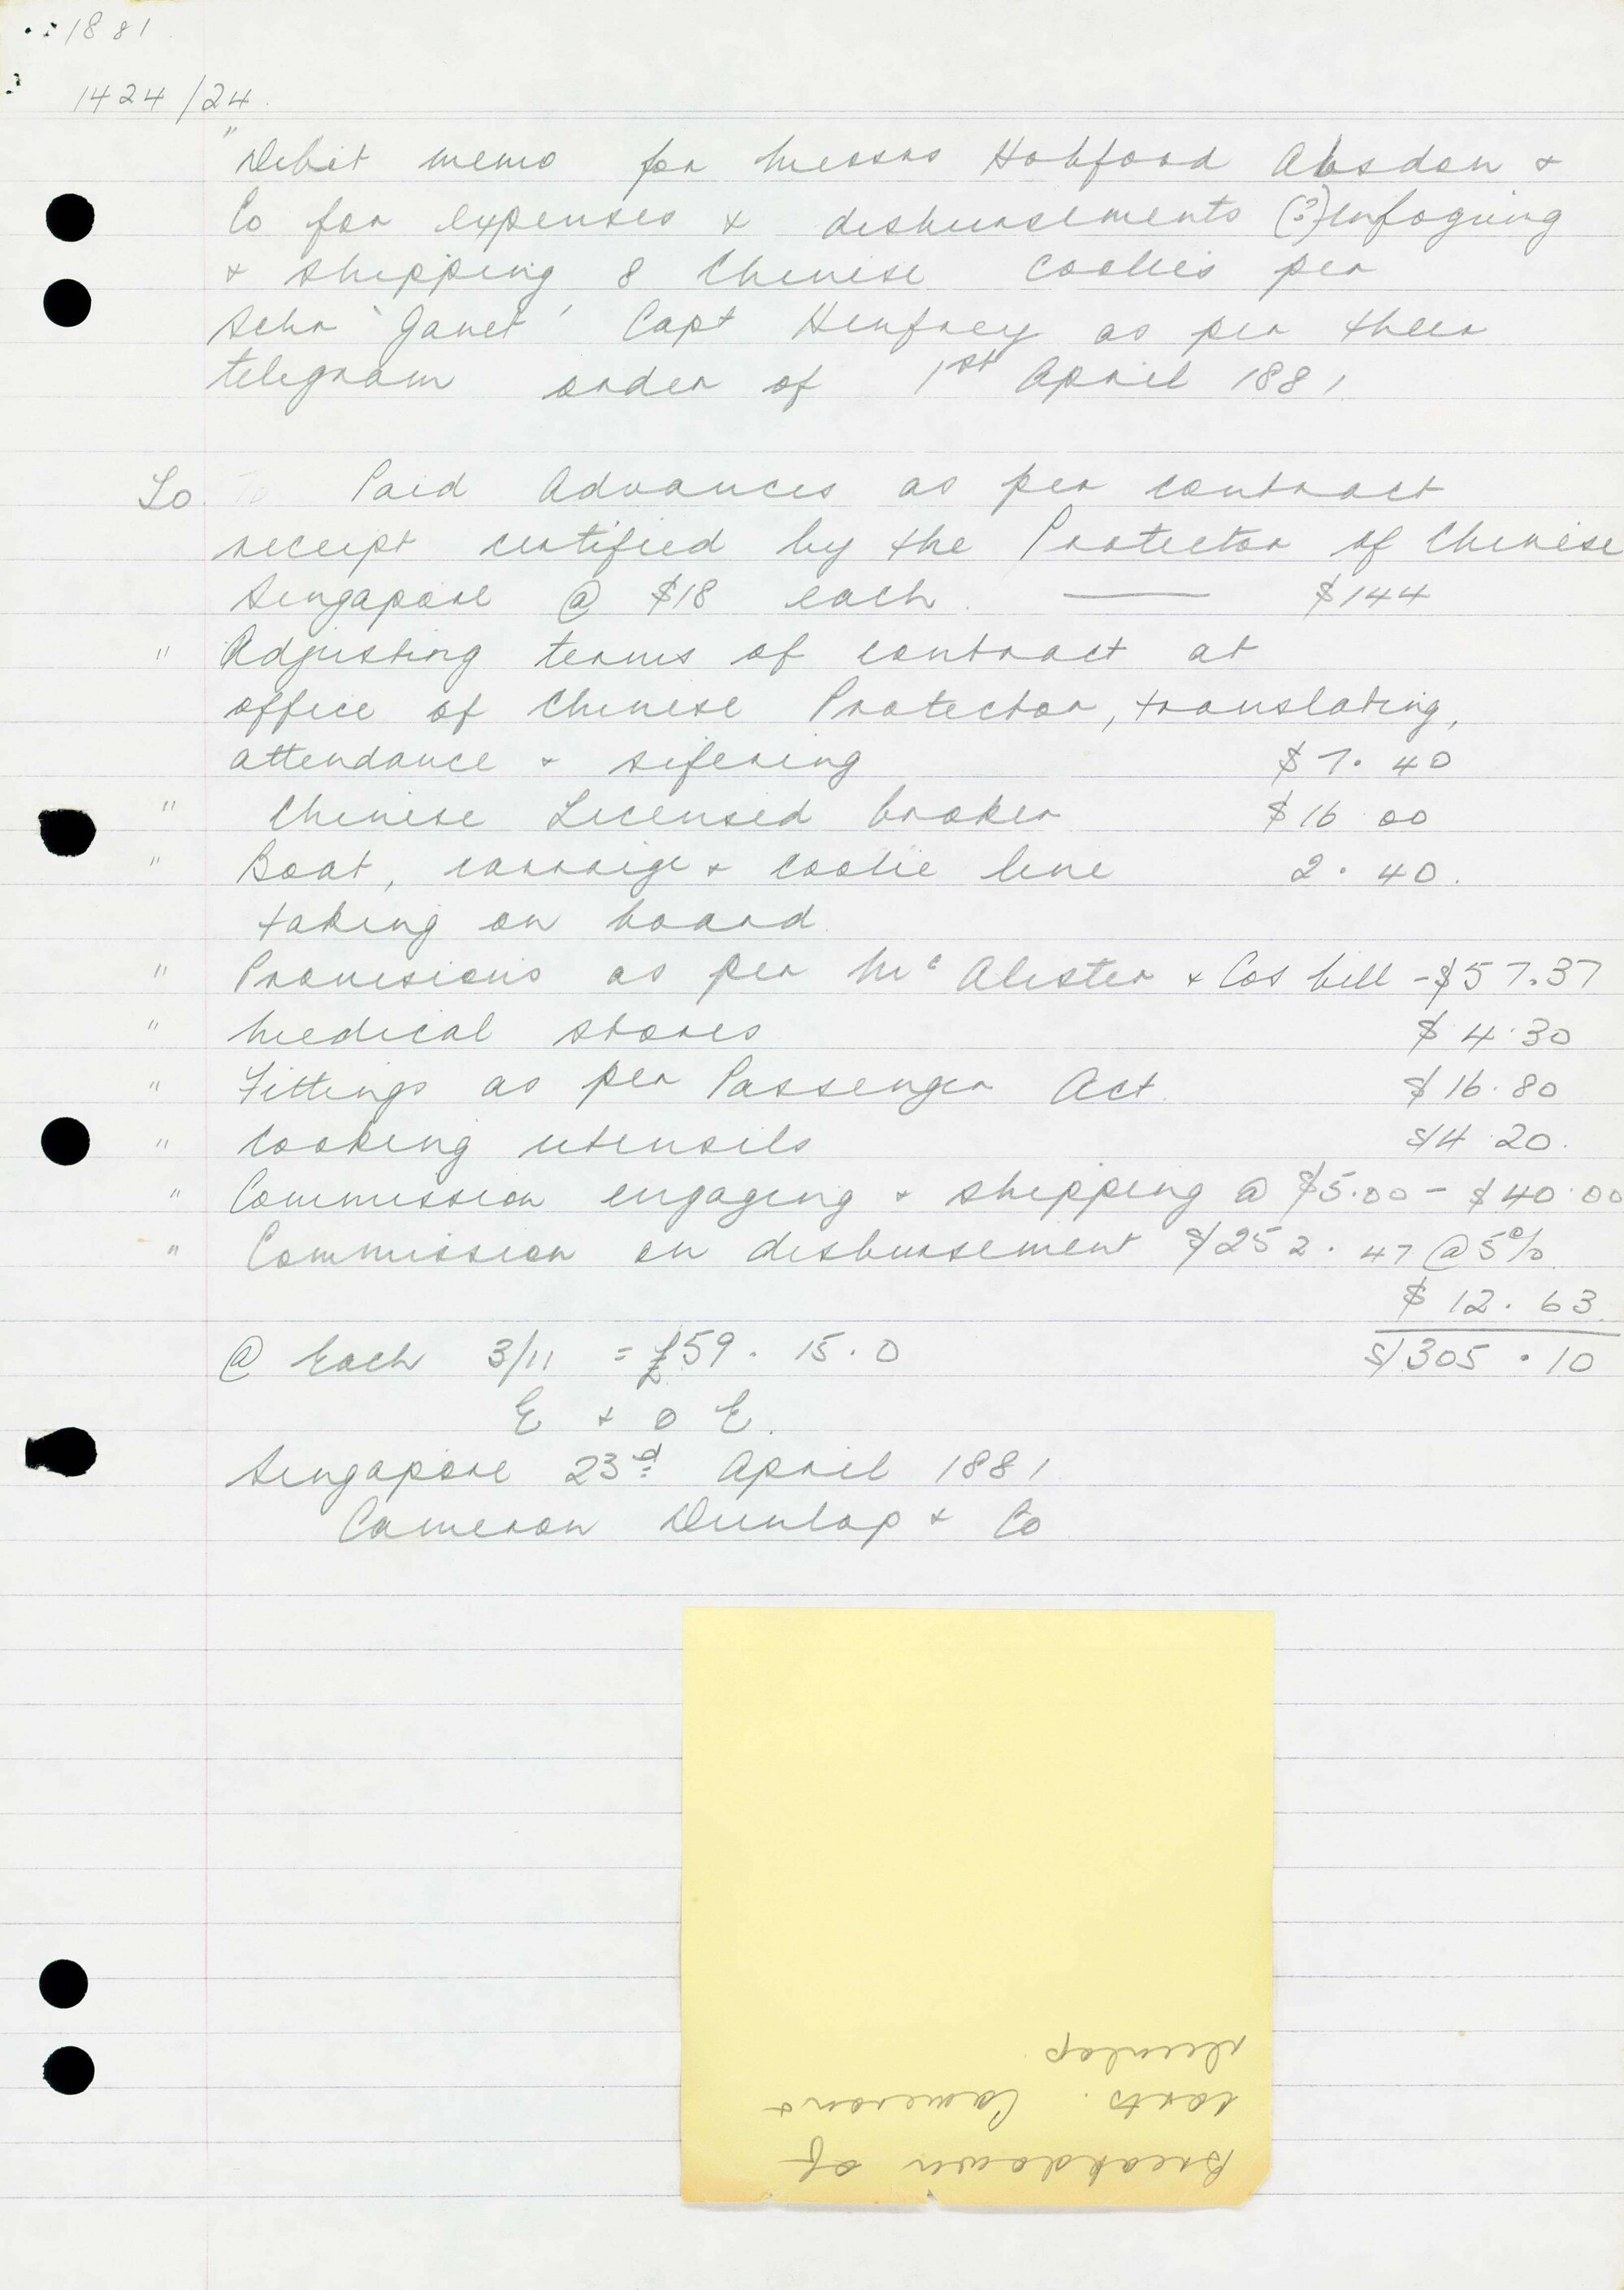 1881
1424/24.
"Debit memo for Messrs Hobfoord Absdon &
Co for expenses & disbursements (?) enfoguing
& shipping 8 Chinese coolies per
Schr 'Janet' Capt Henfrey as per their
telegram order of 1st April 1881
To Paid Advances as per contract
receipt certified by the Protector of Chinese
Singapore @ $18 each. — $144
" Adjusting terms of contract at
office of Chinese Protector, translating,
attendance & sifering $7.40
" Chinese Licensed broker $16 00
" Boat, carraige & coolie line 2.40.
taking on board
" Provisions as per Mc Alister & Cos bill - $57.37
" Medical stores $4.30
" Fittings as per Passenger Act. $16.80
" Cooking utensils $4 20.
" Commission engaging & shipping @ $5.00 - $40.00
" Commission on disbursement $252.47 @ 5%
$12.63
@ Each 3/11 = £59.15.0 $305.10
E & O E.
Singapore 23d April 1881
Cameron Dunlop & Co
Breakdown of
costs. Cameron &
Dunlop